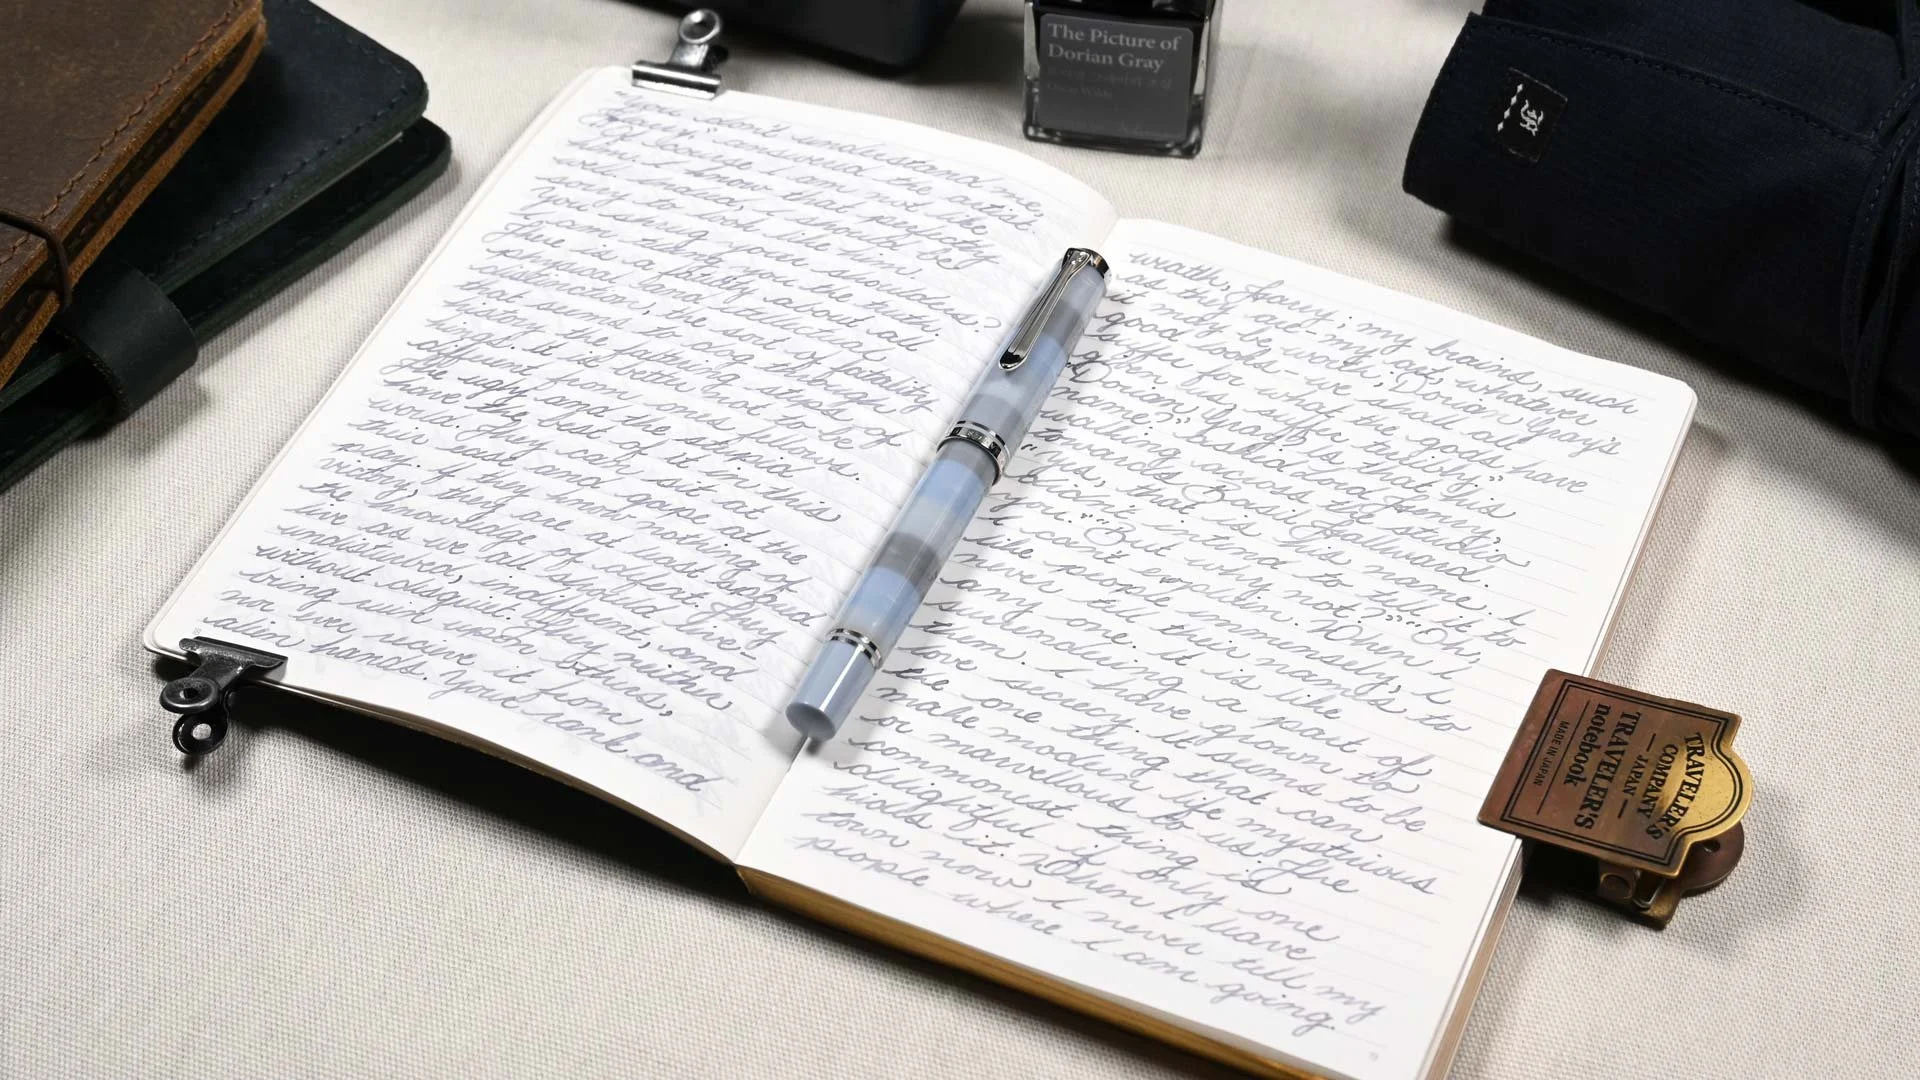 "You don't understand me,
Harry" answered the artist.
"Of course I am not like
him. I know that perfectly
well. Indeed, I should be
sorry to look like him.
You shrug your shoulders?
I am telling you the truth.
There is a fatality about all
physical and intellectual
distinction, the sort of fatality
that seems to dog through
history the faltering steps of
kings. It is better not to be
different from one's fellows.
The ugly and the stupid
have the best of it in this
world. They can sit at
their ease and gape at the
play. If they know nothing of
victory, they are at least spared
the knowledge of defeat. They
live as we all should live-
undisturbed, indifferent, and
without disquiet. They neither
bring ruin upon others,
nor ever receive it from
alien hands. Your rank and
wealth, Harry; my brains, such
as they are- my art, whatever
may be worth; Dorian Gray's
good looks- we shall all
suffer for what the gods have
suffer terribly."
"Dorian Gray? Is that his
name?" asked Lord Henry,
walking across the studio
towards Basil Hallward.
"Yes, that is his name. I
didn't intend to tell it to
you." "But why not?" "Oh
I can't explain. When I
like people immensely, I
never tell their names to
any one. It is like
surrendering a part of
them. I have grown to
love secrecy. It seems to be
the one thing that can
make modern life mysterious
or marvellous to us. The
commonest thing is
delightful if only one
hides it. When I leave
town now I never tell my
people where I am going.
The Picture of
Dorian Gray
Oscar Wilde
TRAVELER'S
COMPANY
JAPAN
TRAVELER'S
notebook
MADE IN JAPAN